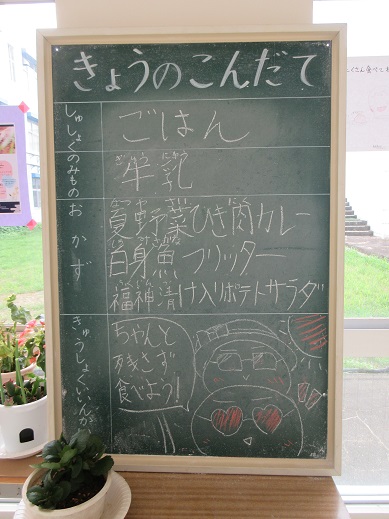 きょうのこんだて
しゅしょく
ごはん
のみもの
ぎゅうにゅう
牛乳
おかず
なつやさい にく
夏野菜ひき肉カレー
白身魚フリッター
福神漬け入りポテトサラダ
きゅうしょくいいんか
ちゃんと
残さず
食べよう!